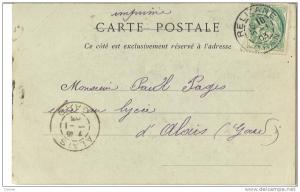 imprimé
CARTE POSTALE
Ce côté est exclusivement réservé à l'adresse
RELIZANE
Monsieur Paul Pages
au lycée
d'Alais (Gard)
ALAIS
GARD